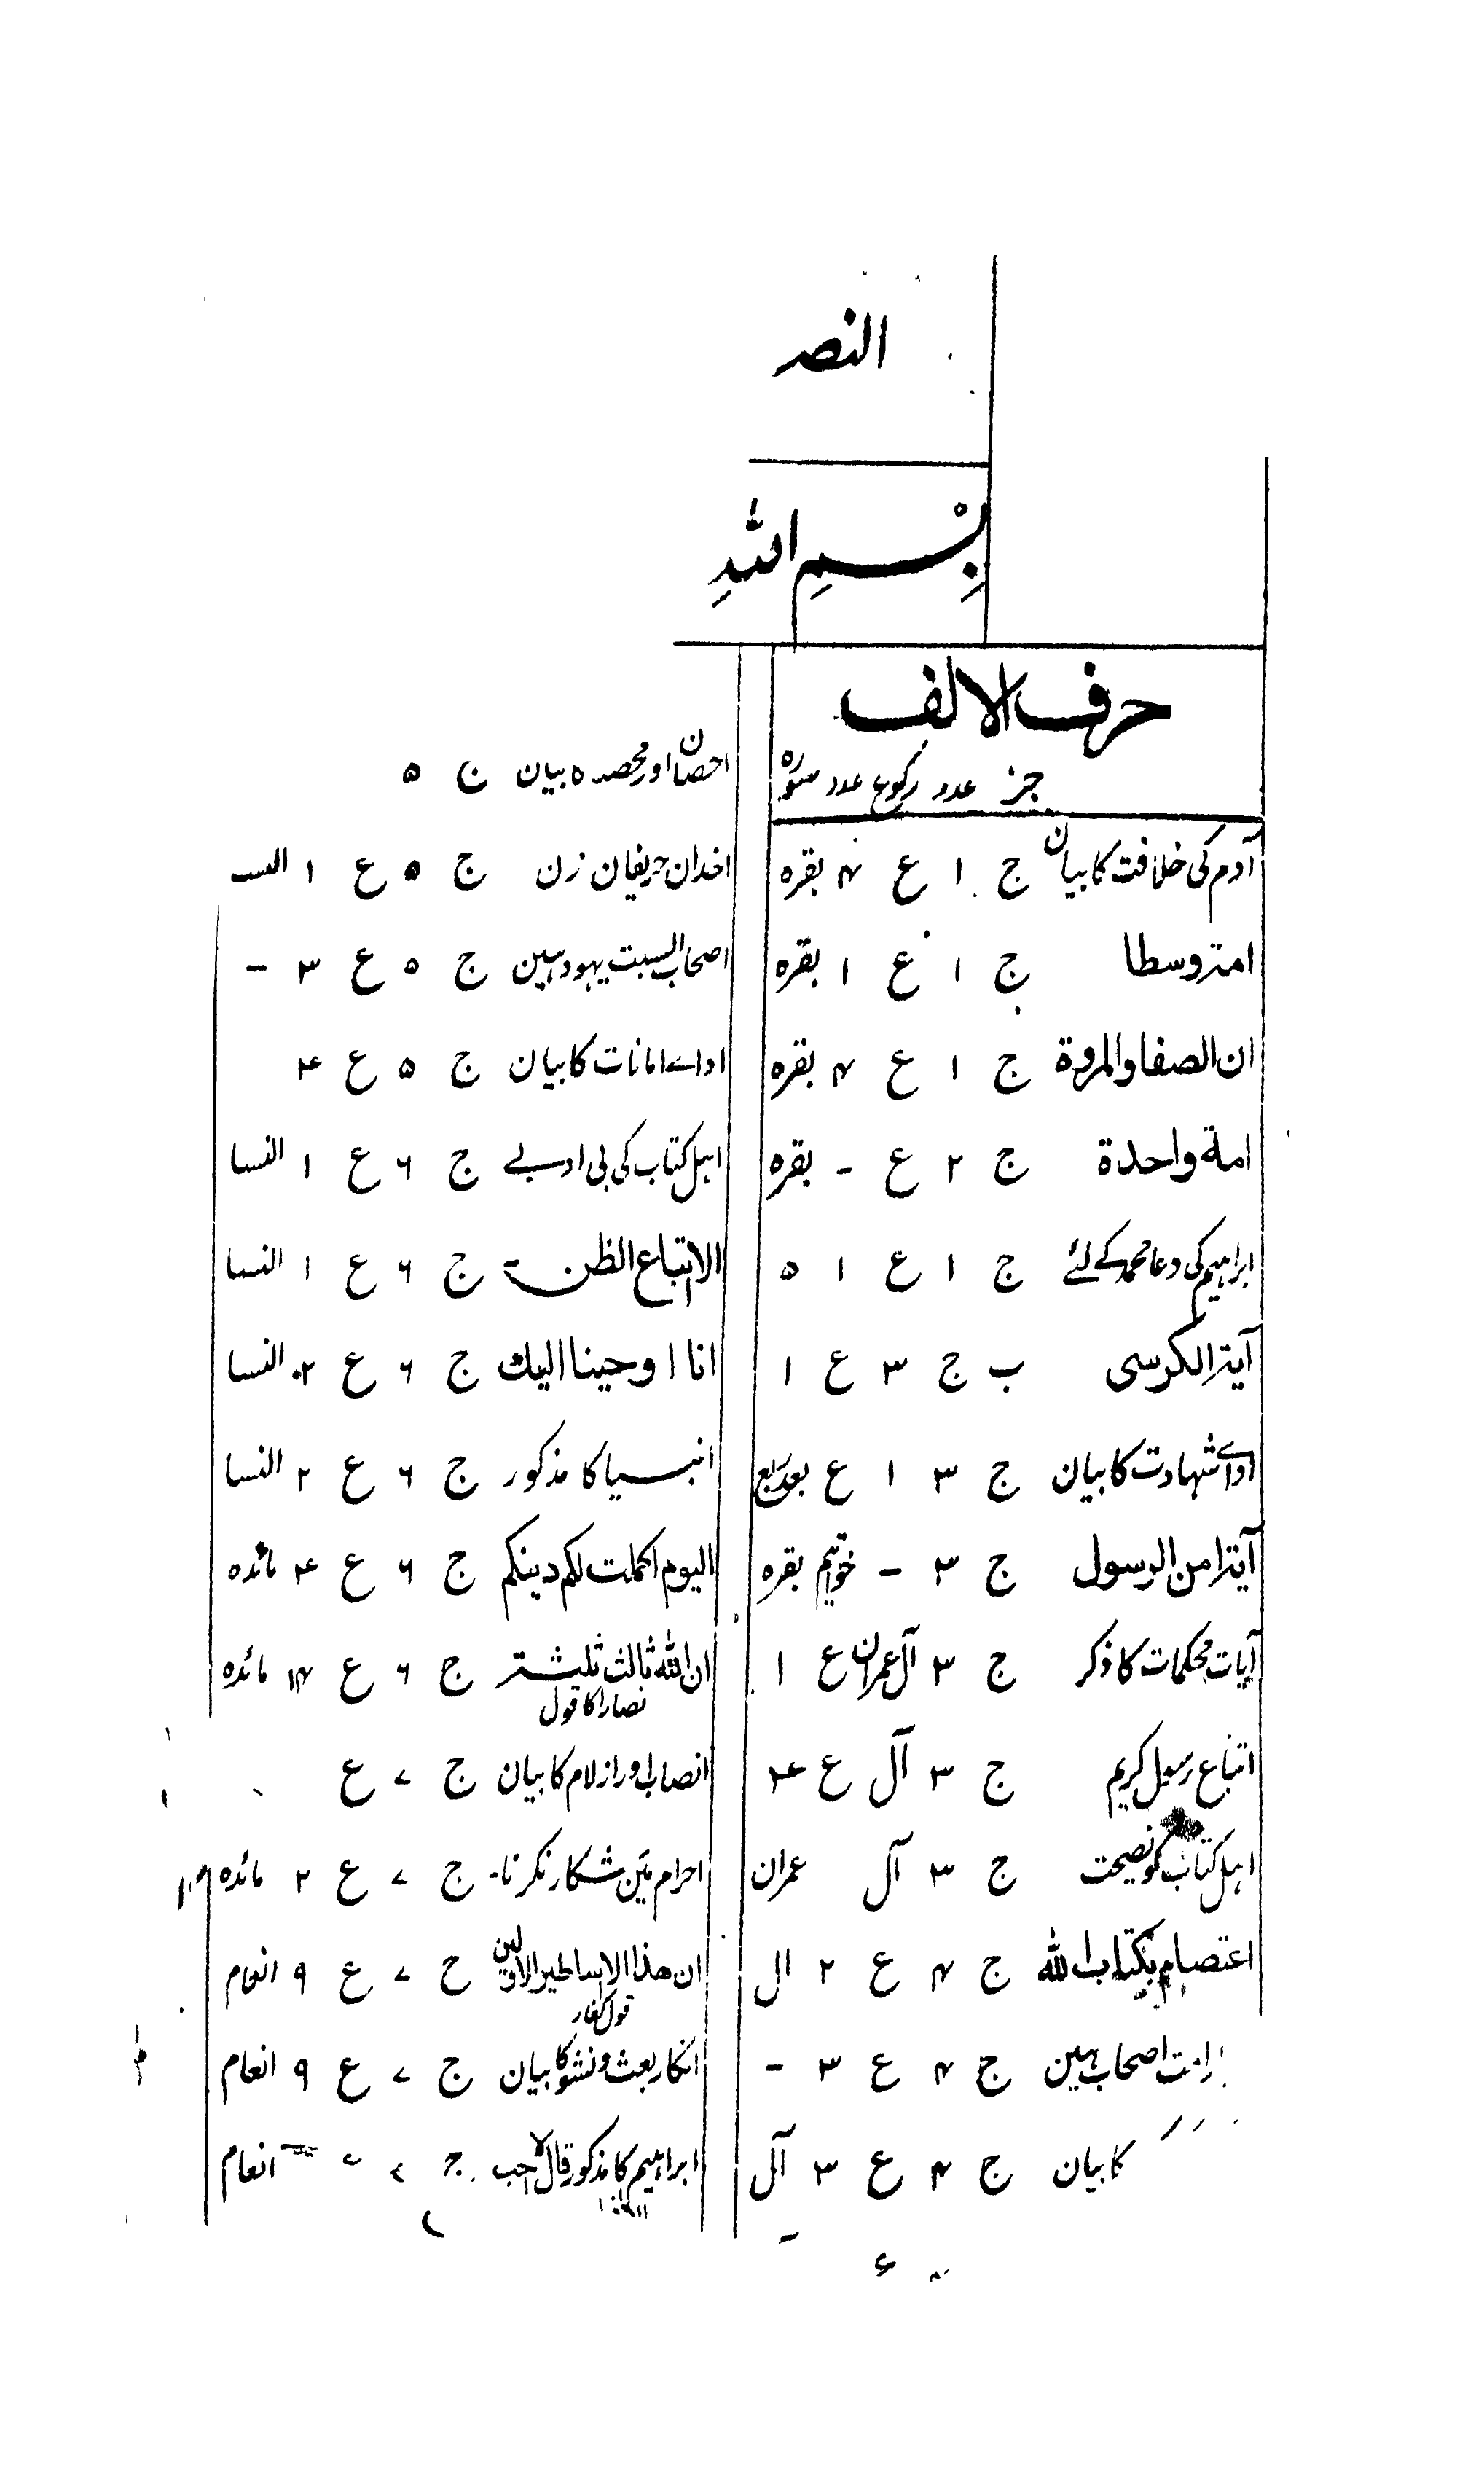 النصر
بِسْمِ اللّٰہِ
حرف الالف
جز عدد رکوع عدد سورہ
آدم کی خلافت کا بیان ج ۱ ع ۴ بقرہ
امتہ وسطا ج ۱ ع ۱ بقرہ
ان الصفا والمروة ج ۱ ع ۴ بقرہ
امة واحدة ج ۲ ع - بقرہ
ابراہیم کی دعا محمد کے لئے ج ۱ ع ۱ ۵
آیتہ الکرسی ب ج ۳ ع ۱
اداے شہادت کا بیان ج ۳ ۱ ع بعد ربع
آیتہ امن الرسول ج ۳ - خواتیم بقرہ
آیات محکمات کا ذکر ج ۳ آل عمران ع ۱
اتباع رسول کریم ج ۳ آل ع ۴
اہل کتاب کو نصیحت ج ۳ آل عمران
اعتصام بکتاب الله ج ۴ ع ۲ ال
امت اصحاب ہین ج ۴ ع ۳ -
کا بیان ج ۴ ع ۳ آل
احصان اور محصنہ بیان ج ۵
اخدان حریفان زن ج ۵ ع ۱ النسـ
اصحاب السبت یہود ہین ج ۵ ع ۳ -
اداے امانات کا بیان ج ۵ ع ۴
اہل کتاب کی بی ادبے ج ۶ ع ۱ النسا
الا اتباع الظن - ج ۶ ع ۱ النسا
انا اوحینا الیك ج ۶ ع ۲ النسا
انبیا کا مذکور ج ۶ ع ۲ النسا
الیوم اکملت لکم دینکم ج ۶ ع ۴ مائدہ
ان الله ثالث ثلثتہ ج ۶ ع ۱۴ مائدہ
نصارا کا قول
انصاب اور ازلام کا بیان ج ۷ ع
احرام مین شکار نکرنا - ج ۷ ع ۲ مائدہ
ان هذا الا اساطیر الاولین ج ۷ ع ۹ انعام
قول کفار
انکار بعث و نشور کا بیان ج ۷ ع ۹ انعام
ابراہیم کا مذکور قال لا احب ج ۷ انعام